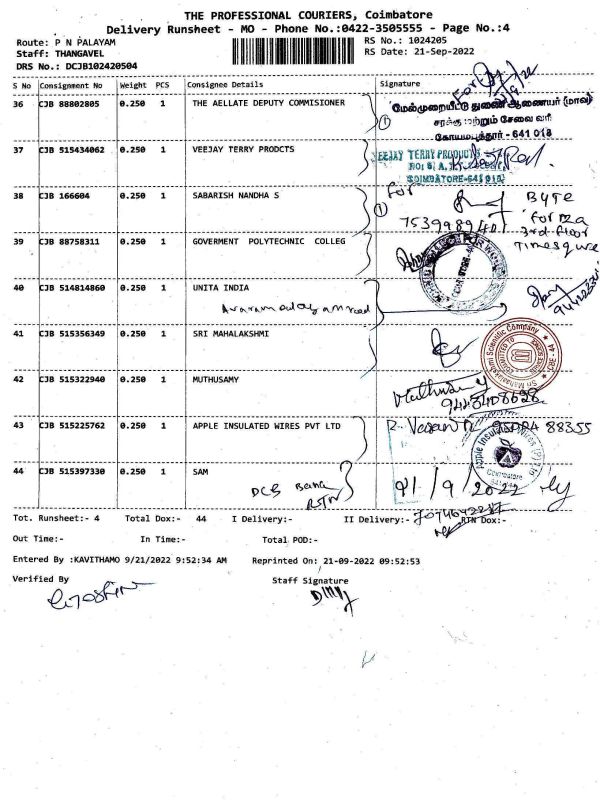 THE PROFESSIONAL COURIERS, Coimbatore
Delivery Runsheet - MO - Phone No.:0422-3505555 - Page No.:4
Route: P N PALAYAM
RS No.: 1024205
Staff: THANGAVEL
RS Date: 21-Sep-2022
DRS No.: DCJB102420504
S No Consignment No Weight PCS Consignee Details Signature
36 CJB 88802805 0.250 1 THE AELLATE DEPUTY COMMISIONER
For
மேல்முறையீட்டு துணை ஆணையர் (மாவ)
சரக்கு மற்றும் சேவை வரி
கோயமுத்தூர் - 641 018
37 CJB 515434062 0.250 1 VEEJAY TERRY PRODCTS
VEEJAY TERRY PRODUCTS
COIMBATORE-641 018
38 CJB 166604 0.250 1 SABARISH NANDHA S
For
BYTE
Forza
3rd floor
Timesqure
39 CJB 88758311 0.250 1 GOVERMENT POLYTECHNIC COLLEG
40 CJB 514814860 0.250 1 UNITA INDIA
41 CJB 515356349 0.250 1 SRI MAHALAKSHMI
Sri Mahalakshmi Scientific Company
42 CJB 515322940 0.250 1 MUTHUSAMY
Muthusamy
43 CJB 515225762 0.250 1 APPLE INSULATED WIRES PVT LTD
R. Vasan
88355
Apple Insulated Wires (P) Ltd
Coimbatore
44 CJB 515397330 0.250 1 SAM
DCB Bank
RSTN
21/9/2022
Tot. Runsheet:- 4 Total Dox:- 44 I Delivery:- II Delivery:- RTN Dox:-
Out Time:- In Time:- Total POD:-
Entered By :KAVITHAMO 9/21/2022 9:52:34 AM Reprinted On: 21-09-2022 09:52:53
Verified By Staff Signature